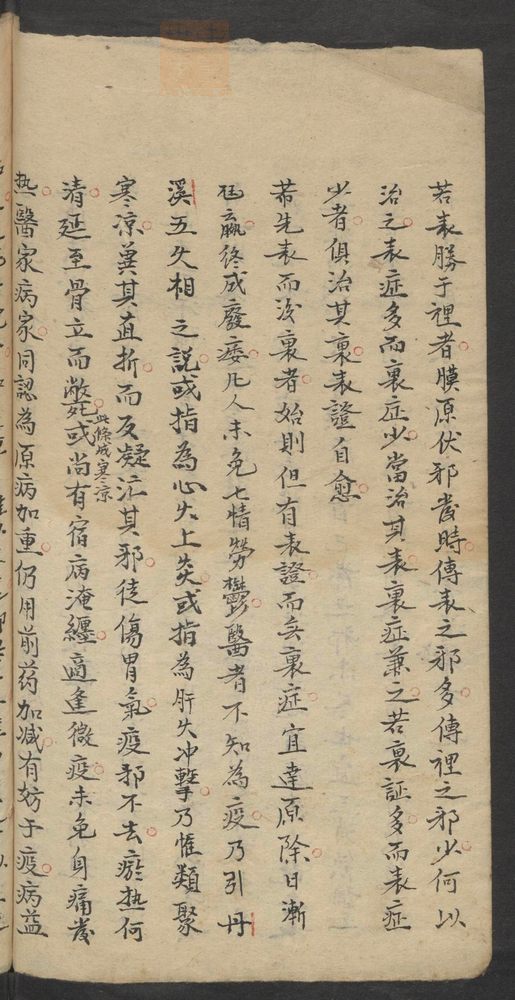 若表勝于裡者膜原伏邪發時傳表之邪多傳裡之邪少何以
治之表症多而裏症少當治其表裏症兼之若裏証多而表症
少者俱治其裏表證自愈
若先表而後裏者始則但有表證而無裏症宜達原除日漸
尫羸終成廢痿凡人未免七情勞鬱醫者不知為疫乃引丹
溪五火相之説或指為心火上炎或指為肝火冲擊乃惟類聚
寒凉冀其直折而反凝泣其邪徒傷胃氣疫邪不去瘀热何
清延至骨立而斃或尚有宿病淹纏適逢微疫未免身痛發
此條戒寒凉
热醫家病家同認為原病加重仍用前药加减有妨于疫病益